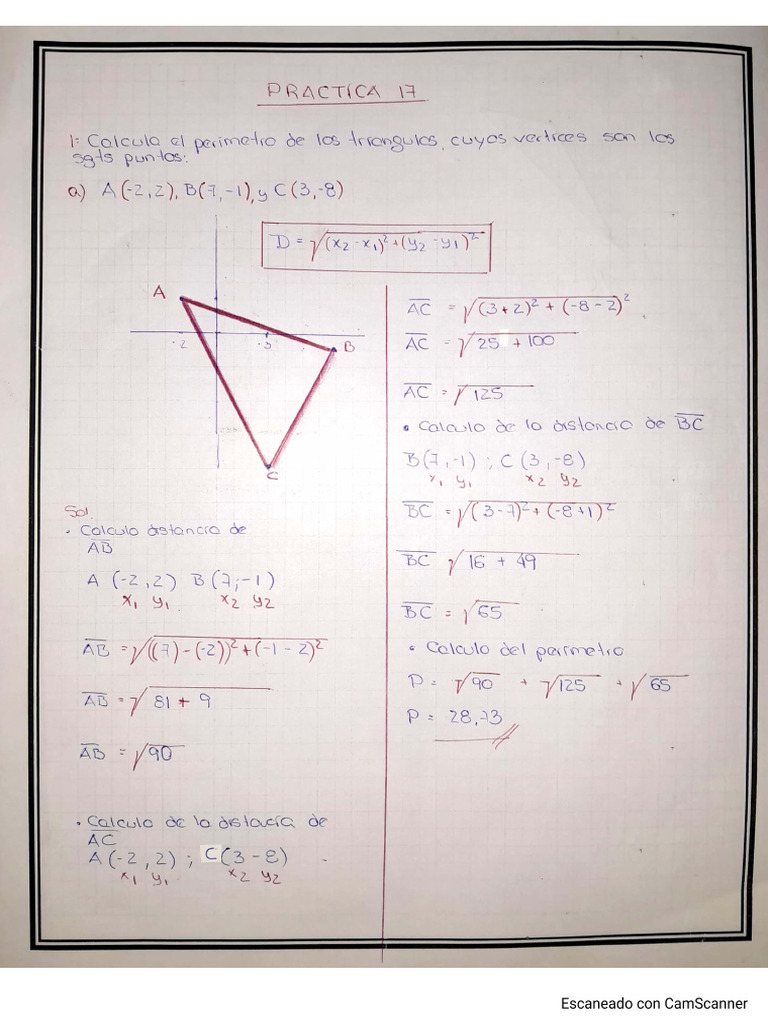 PRACTICA 17
1: Calcula el perimetro de los triangulos, cuyos vertices son los
sgts puntos:
a) A(-2,2), B(7,-1), y C(3,-8)
D = √(x₂-x₁)²+(y₂-y₁)²
A
-2
·3
B
C
Sol.
· Calculo distancia de
AB
A (-2,2) B(7,-1)
x₁ y₁ x₂ y₂
AB = √((7)-(-2))²+(-1-2)²
AB = √81+9
AB = √90
· Calculo de la distancia de
AC
A(-2,2) ; C(3-8)
x₁ y₁ x₂ y₂
AC = √(3+2)²+(-8-2)²
AC = √25+100
AC = √125
· Calculo de la distancia de BC
B(7,-1) ; C(3,-8)
x₁ y₁ x₂ y₂
BC = √(3-7)²+(-8+1)²
BC √16+49
BC = √65
· Calculo del perimetro
P = √90 + √125 + √65
P = 28,73
Escaneado con CamScanner